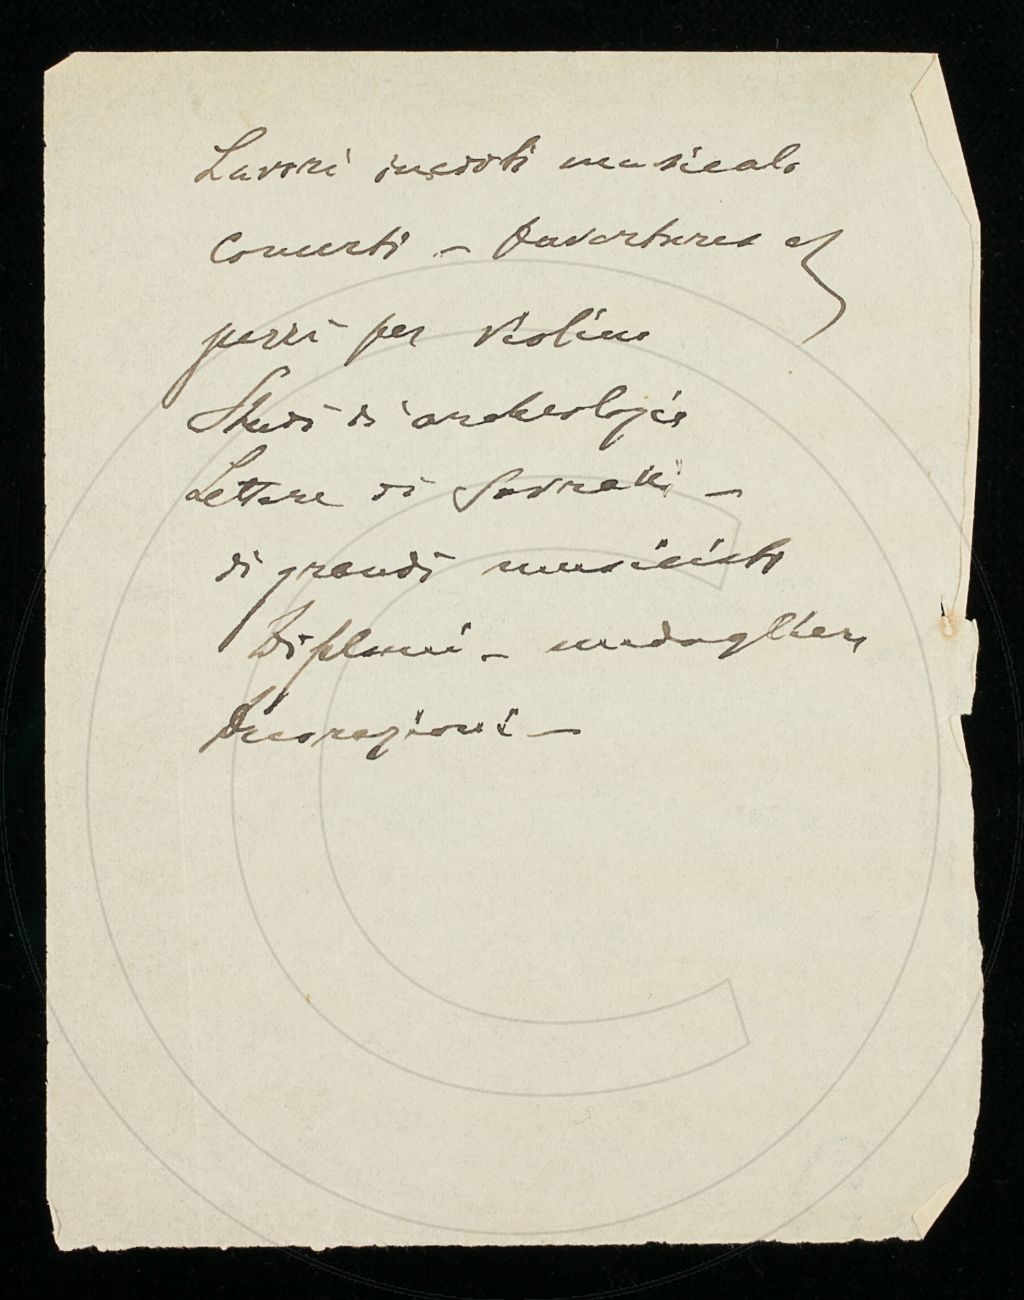 Lavori inediti musicali
Concerti – Ouvertures e
pezzi per Violino
Studi di archeologia
Lettere di Sovrani –
di grandi musicisti
Diplomi – medaglie,
Decorazioni –